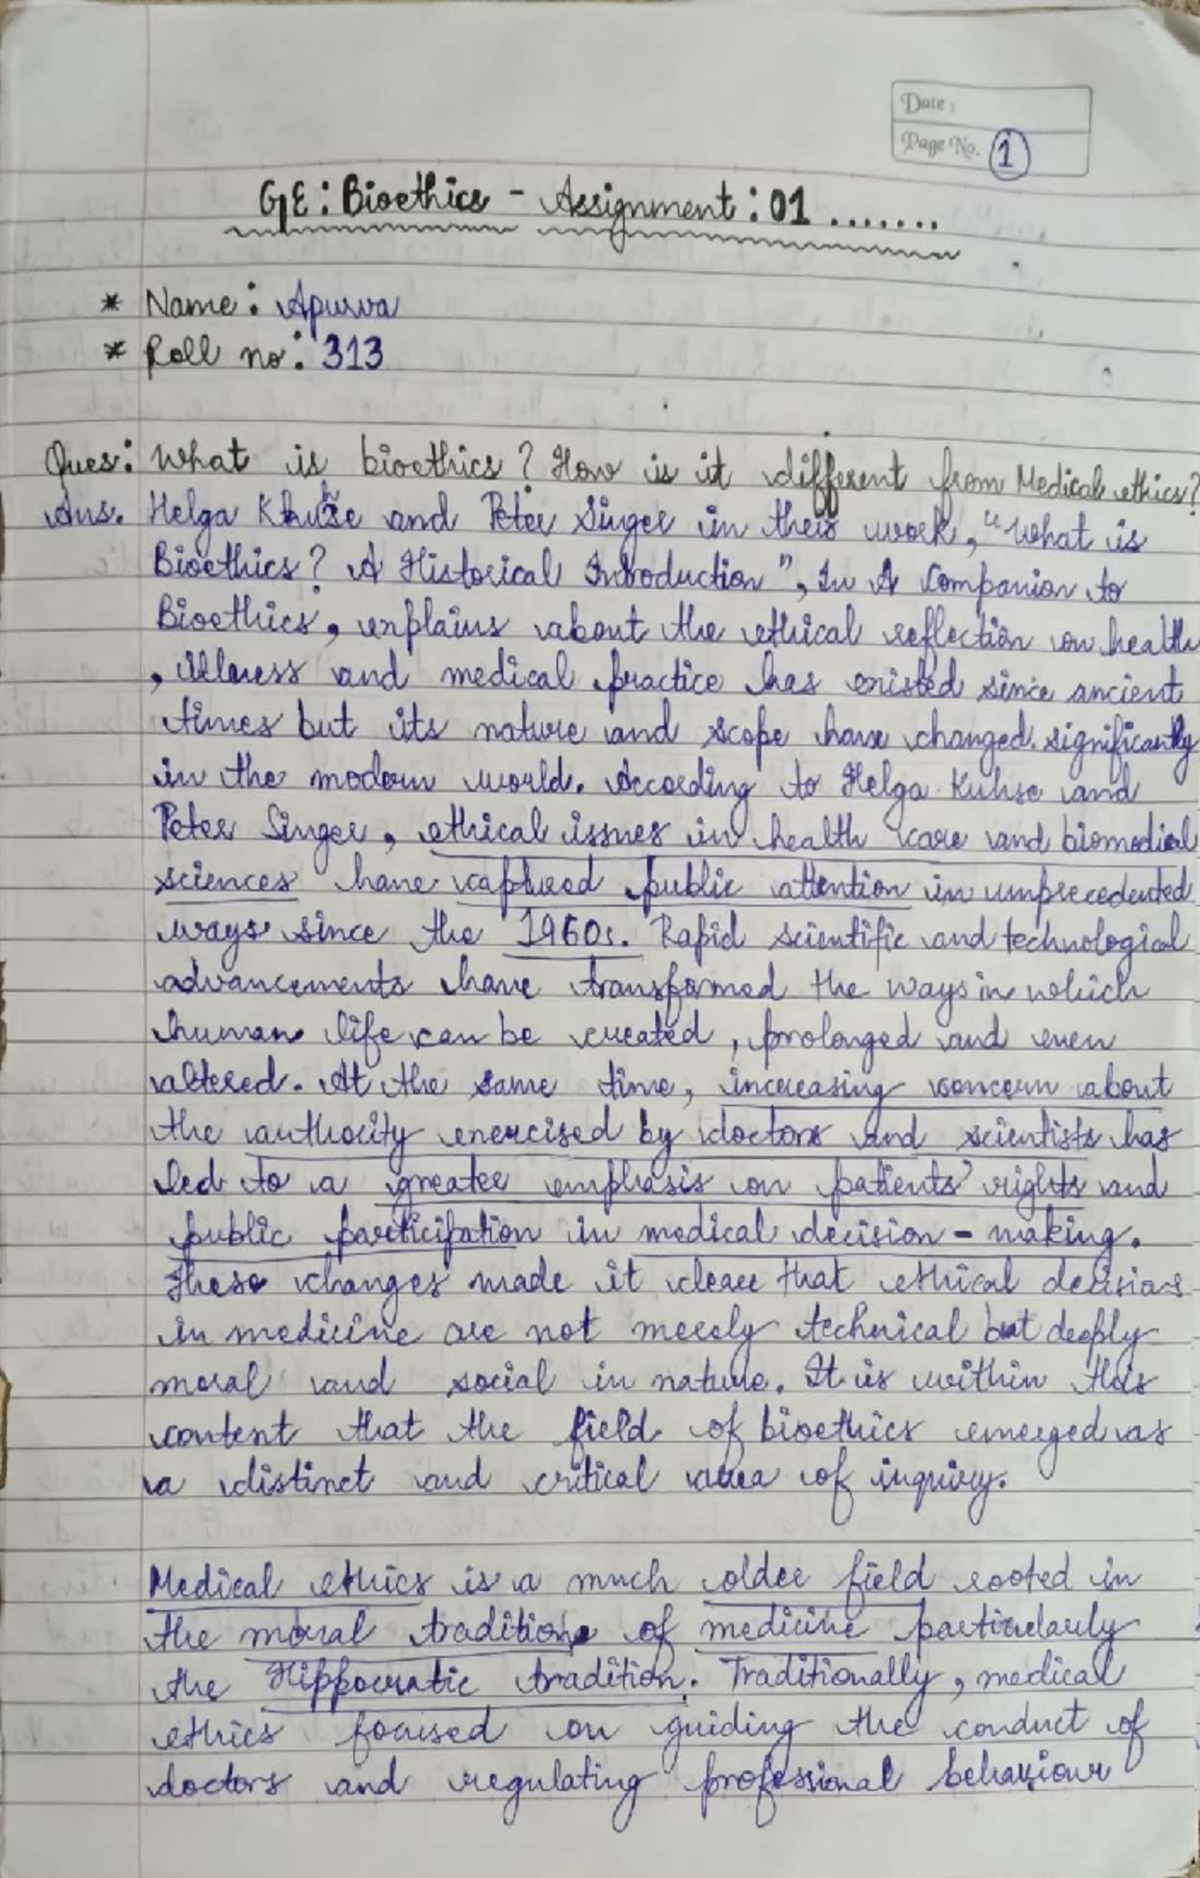 Date :
Page No. 1
GE: Bioethics - Assignment : 01 .......
* Name : Apurva
* Roll no : 313
Ques: What is bioethics ? How is it different from Medical ethics ?
Ans. Helga Khuze and Peter Singer in their work, "What is
Bioethics ? A Historical Introduction", In A Companion to
Bioethics, explains about the ethical reflection on health
, illness and medical practice has existed since ancient
times but its nature and scope have changed significantly
in the modern world. According to Helga Kuhse and
Peter Singer, ethical issues in health care and biomedical
sciences have captured public attention in unprecedented
ways since the 1960s. Rapid scientific and technological
advancements have transformed the ways in which
human life can be created, prolonged and even
altered. At the same time, increasing concern about
the authority exercised by doctors and scientists has
led to a greater emphasis on patients' rights and
public participation in medical decision - making.
These changes made it clear that ethical decisions
in medicine are not merely technical but deeply
moral and social in nature. It is within this
context that the field of bioethics emerged as
a distinct and critical area of inquiry.
Medical ethics is a much older field rooted in
the moral traditions of medicine particularly
the Hippocratic tradition. Traditionally, medical
ethics focused on guiding the conduct of
doctors and regulating professional behaviour